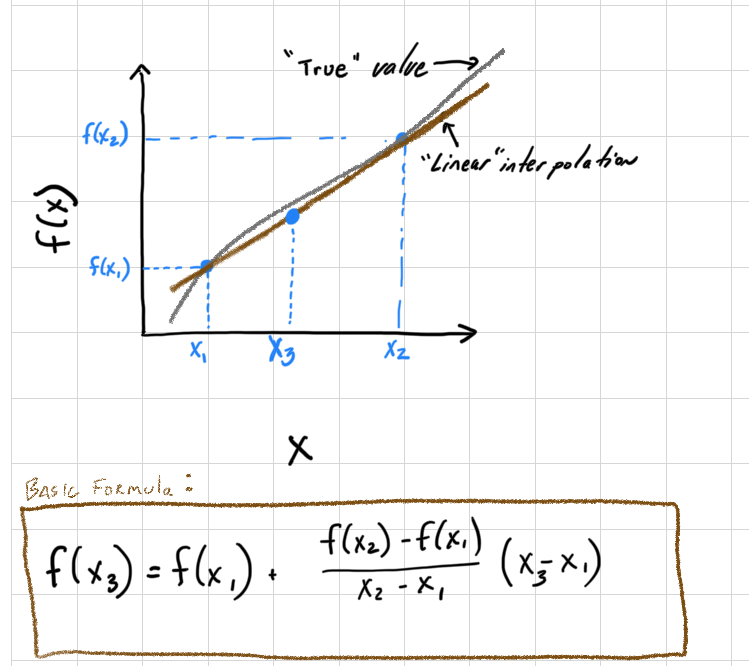 "True" value
f(x₂)
"Linear" interpolation
f(x)
f(x₁)
x₁ x₃ x₂
x
BASIC FORMULA:
f(x₃) = f(x₁) + (f(x₂) - f(x₁))/(x₂ - x₁) (x₃ - x₁)